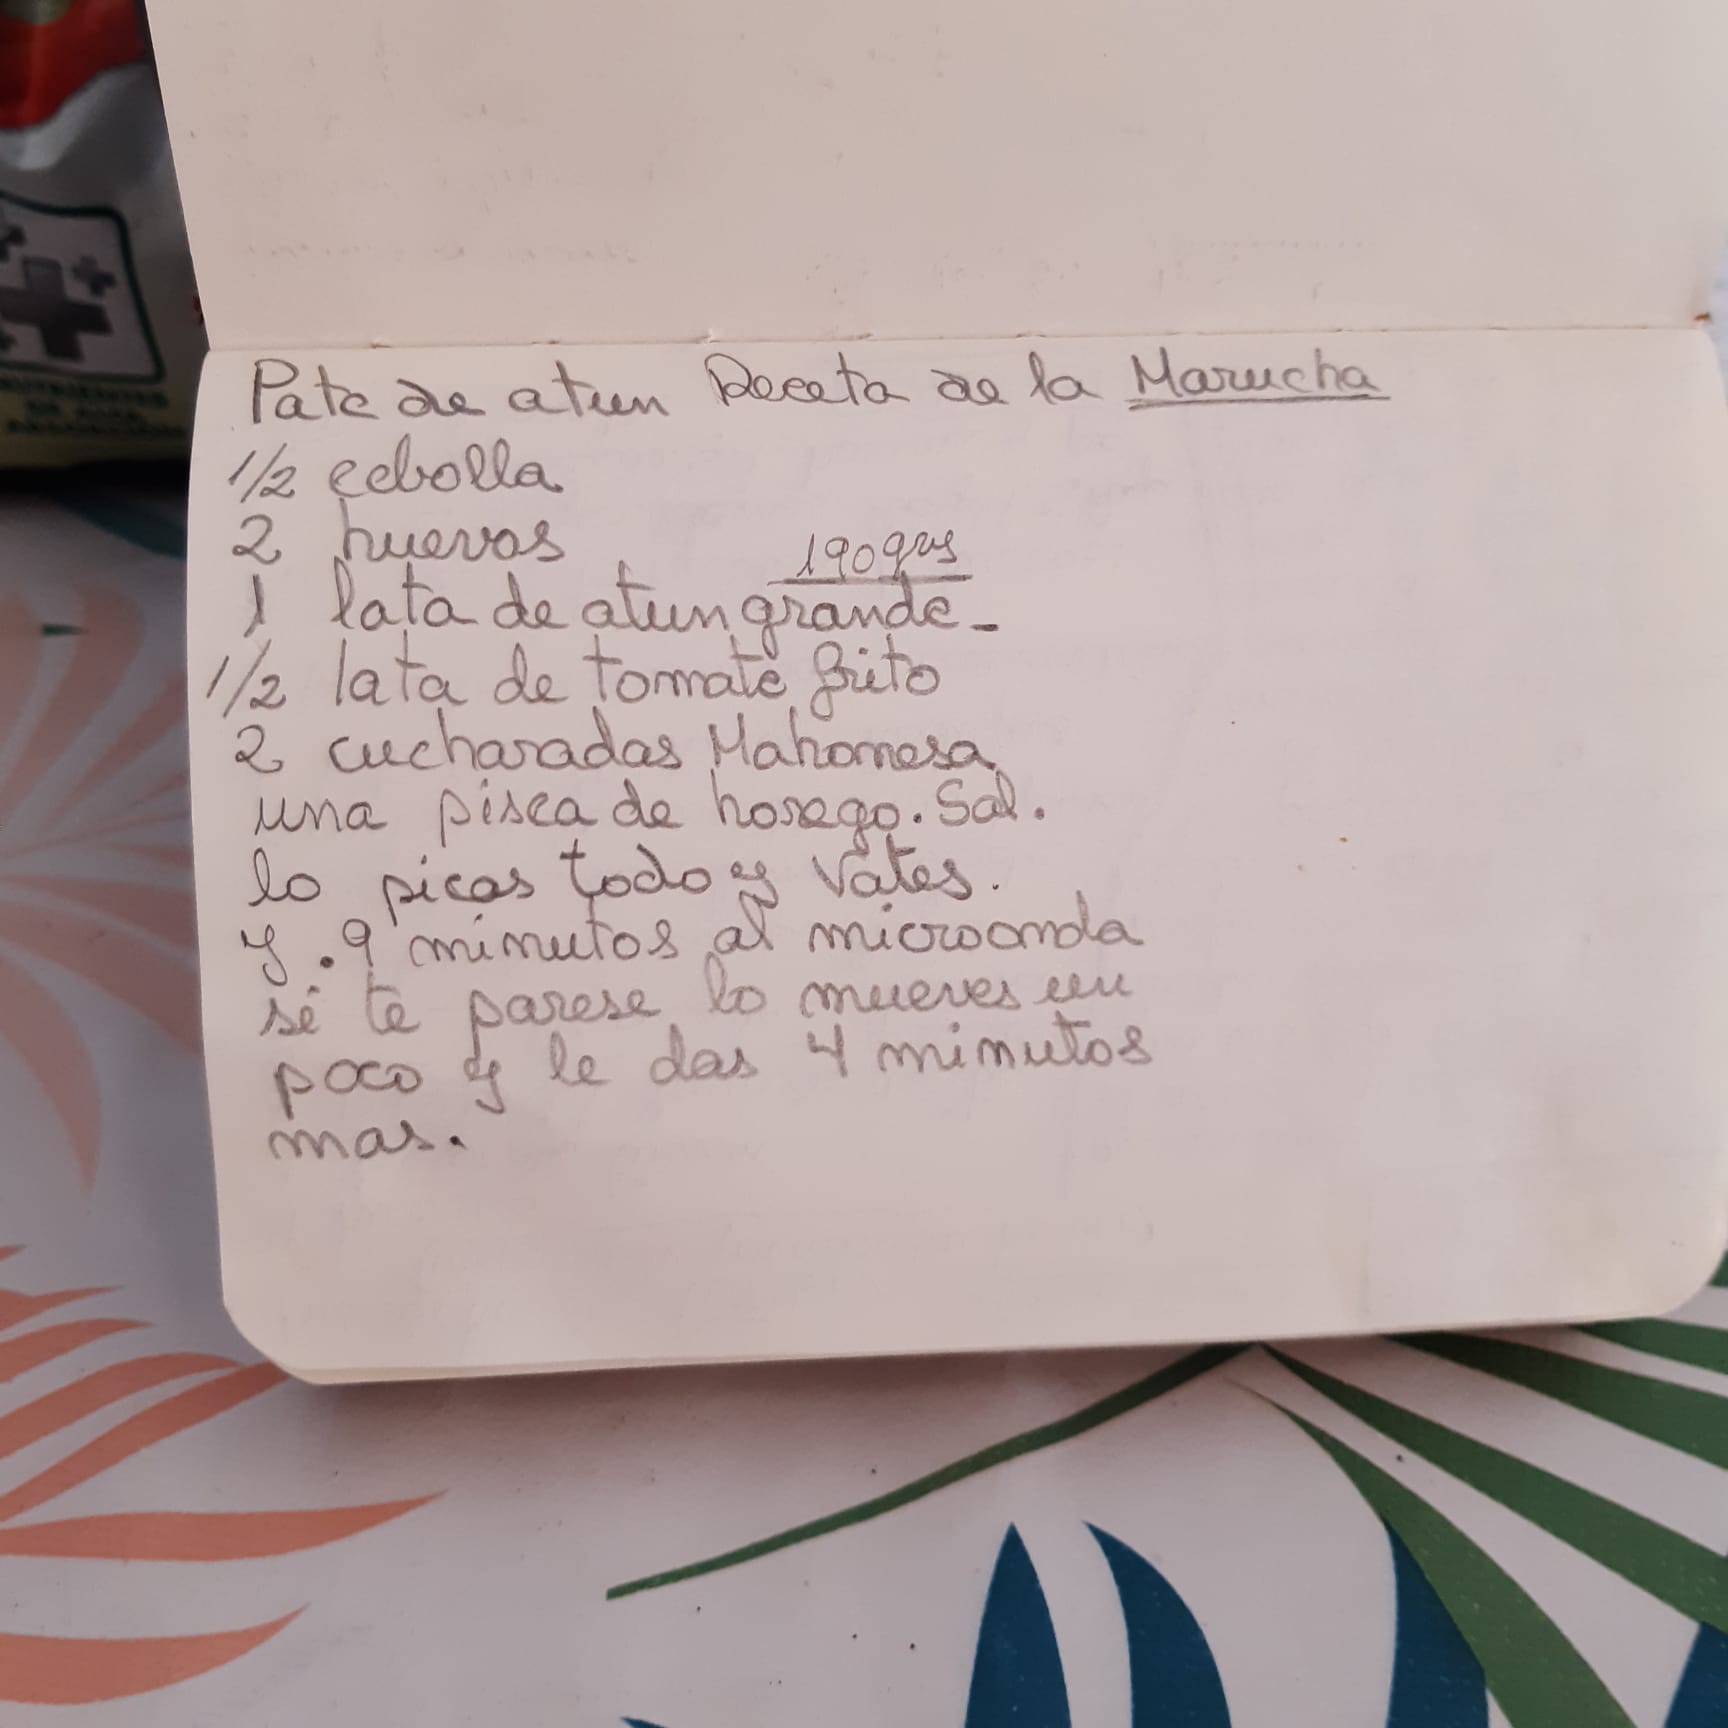 Pate de atun Receta de la Marucha
1/2 cebolla
2 huevos
190 grs
1 lata de atun grande -
1/2 lata de tomate frito
2 cucharadas Mahonesa
una pisca de horego. Sal.
lo picas todo y vates.
y . 9 minutos al microonda
sé te parese lo mueves un
poco y le das 4 minutos
mas.